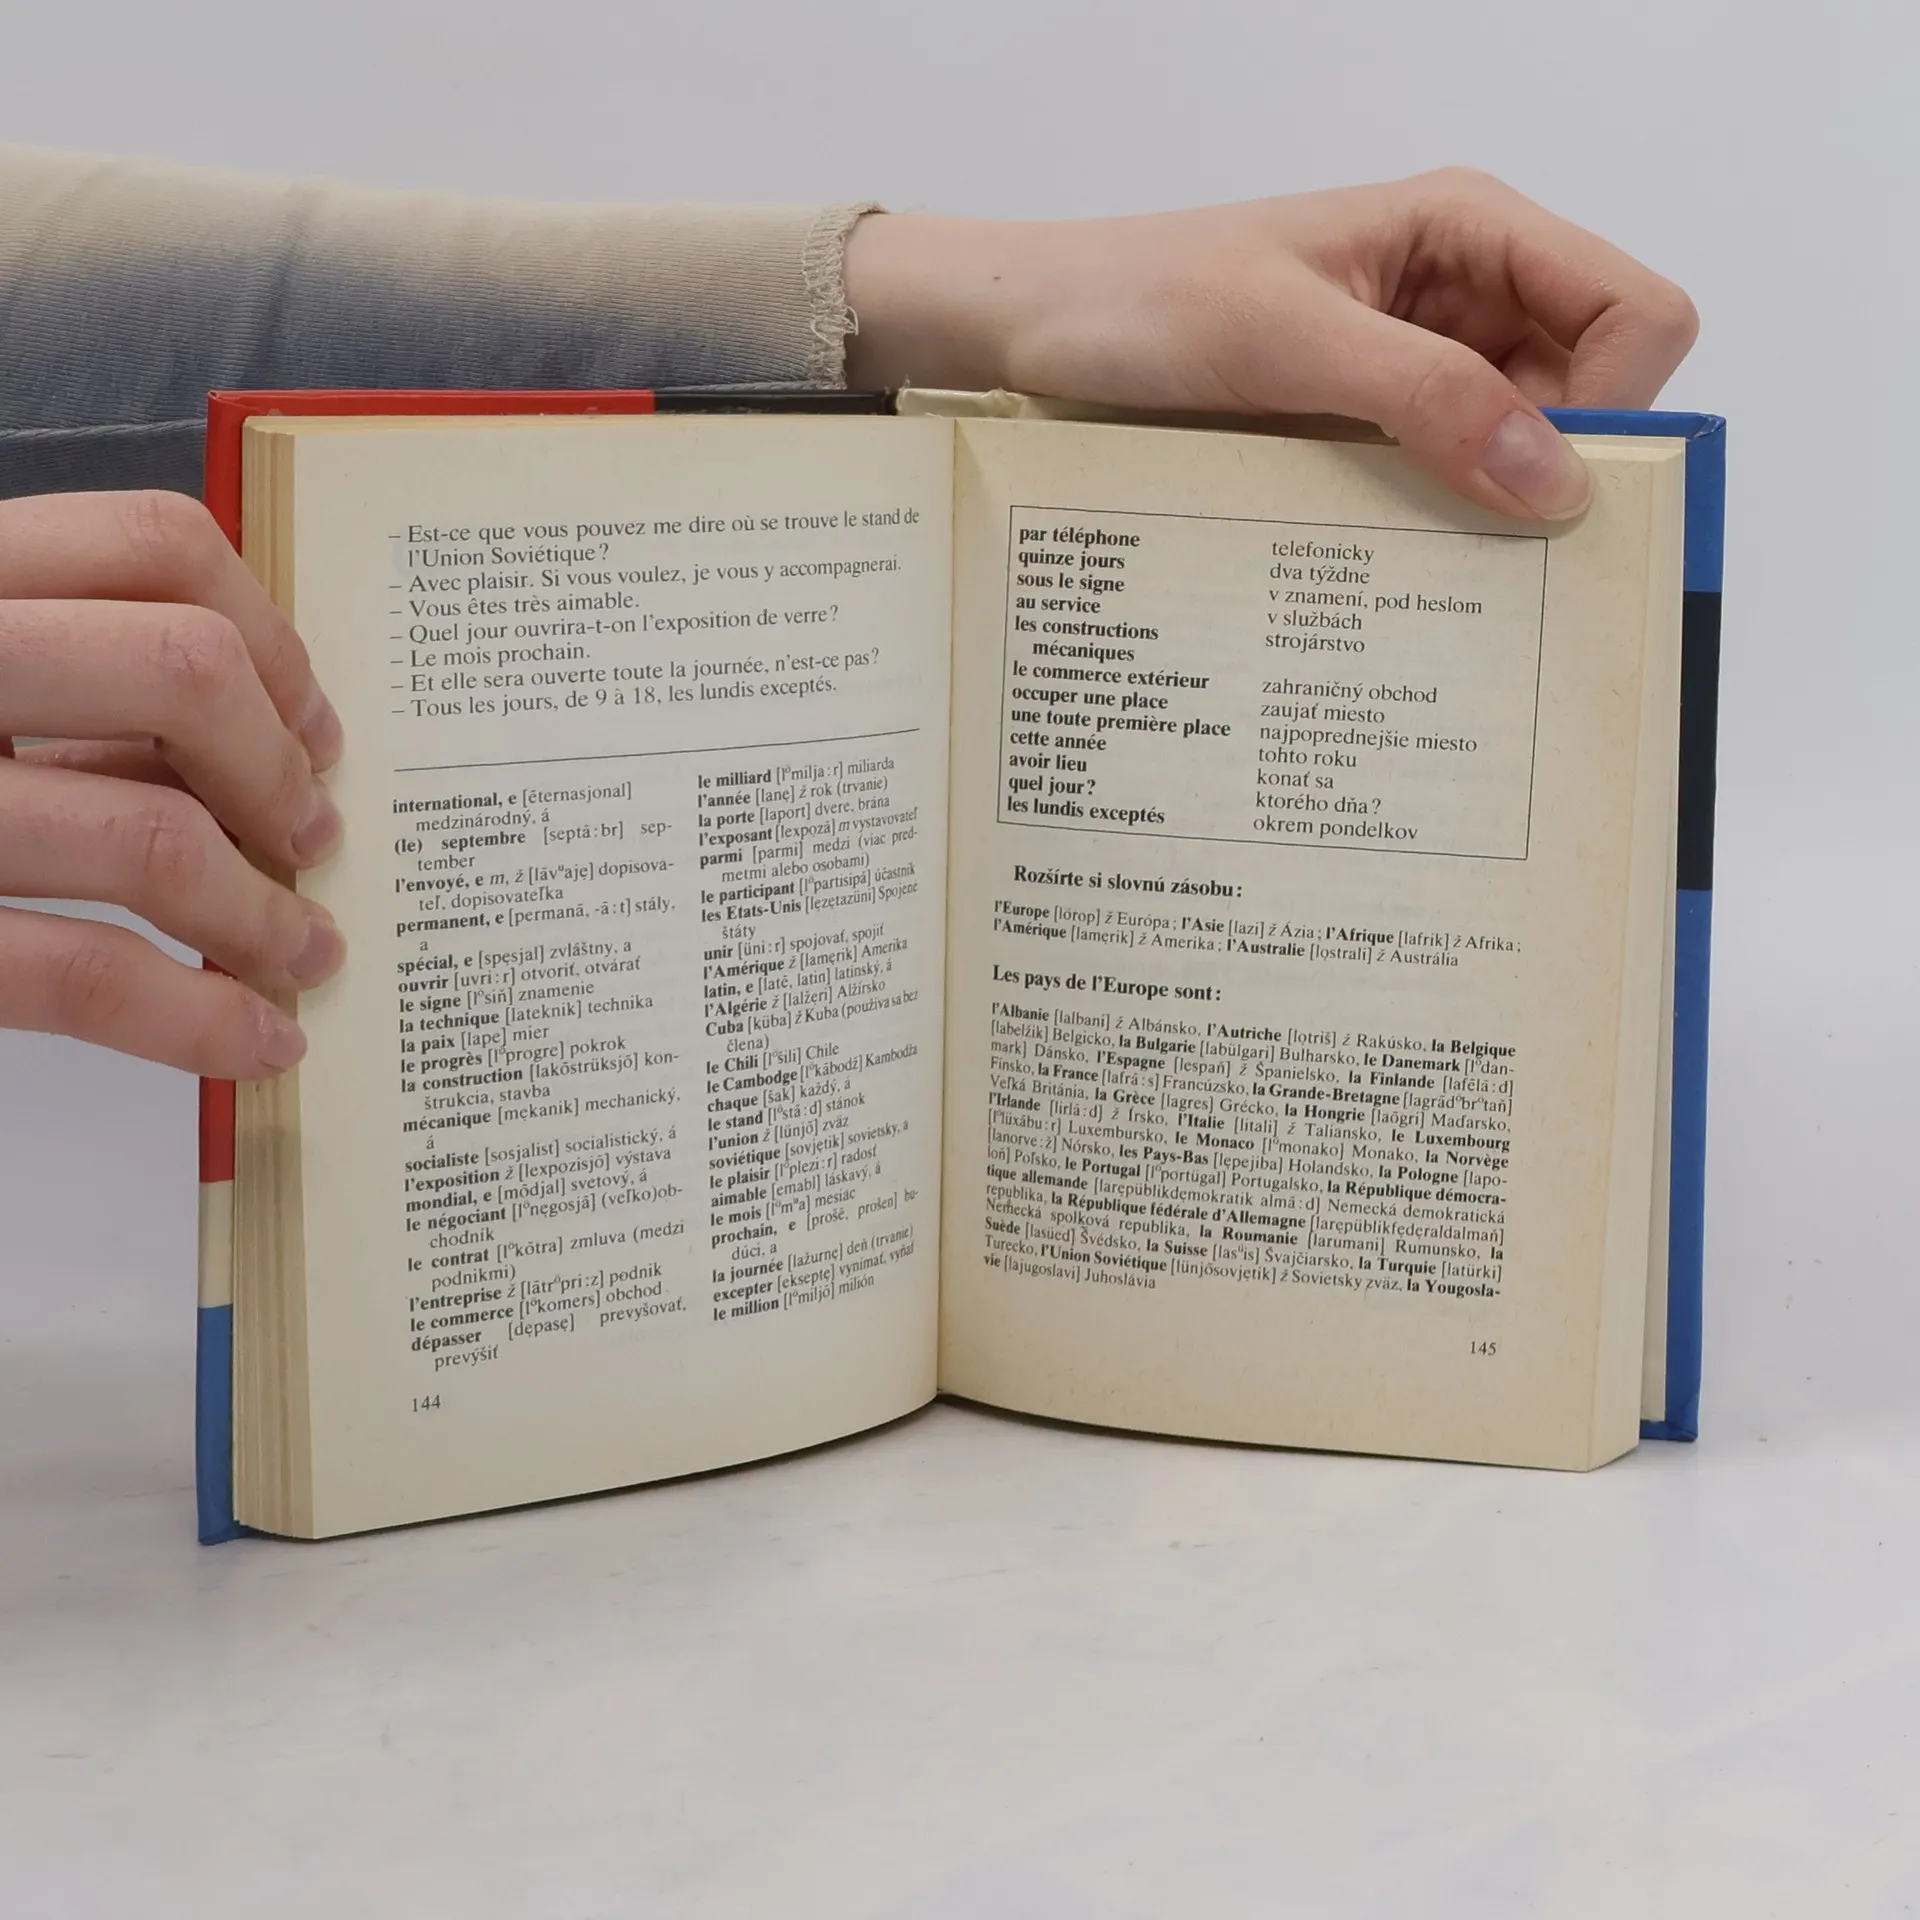 – Est-ce que vous pouvez me dire où se trouve le stand de
l'Union Soviétique?
– Avec plaisir. Si vous voulez, je vous y accompagnerai.
– Vous êtes très aimable.
– Quel jour ouvrira-t-on l'exposition de verre?
– Le mois prochain.
– Et elle sera ouverte toute la journée, n'est-ce pas?
– Tous les jours, de 9 à 18, les lundis exceptés.
international, e [ẽternasjonal]
medzinárodný, á
(le) septembre [septã:br] sep-
tember
l'envoyé, e m, ž [lãvᵘaję] dopisova-
teľ, dopisovateľka
permanent, e [permanã, -ã:t] stály,
a
spécial, e [spęsjal] zvláštny, a
ouvrir [uvri:r] otvoriť, otvárať
le signe [lᵒsiň] znamenie
la technique [lateknik] technika
la paix [lape] mier
le progrès [lᵒprogre] pokrok
la construction [lakõstrüksjõ] kon-
štrukcia, stavba
mécanique [mękanik] mechanický,
á
socialiste [sosjalist] socialistický, á
l'exposition ž [lexpozisjõ] výstava
mondial, e [mõdjal] svetový, á
le négociant [lᵒnęgosjã] (veľko)ob-
chodník
le contrat [lᵒkõtra] zmluva (medzi
podnikmi)
l'entreprise ž [lãtrᵒpri:z] podnik
le commerce [lᵒkomers] obchod
dépasser [dępasę] prevyšovať,
prevýšiť
144
le milliard [lᵒmilja:r] miliarda
l'année [lanę] ž rok (trvanie)
la porte [laport] dvere, brána
l'exposant [lexpozã] m vystavovateľ
parmi [parmi] medzi (viac pred-
metmi alebo osobami)
le participant [lᵒpartisipã] účastník
les Etats-Unis [lęzętazüni] Spojené
štáty
unir [üni:r] spojovať, spojiť
l'Amérique ž [lamęrik] Amerika
latin, e [latẽ, latin] latinský, á
l'Algérie ž [lalžęri] Alžírsko
Cuba [küba] ž Kuba (používa sa bez
člena)
le Chili [lᵒšili] Chile
le Cambodge [lᵒkãbodž] Kambodža
chaque [šak] každý, á
le stand [lᵒstã:d] stánok
l'union ž [lünjõ] zväz
soviétique [sovjętik] sovietsky, a
le plaisir [lᵒplezi:r] radosť
aimable [emabl] láskavý, á
le mois [lᵒmᵘa] mesiac
prochain, e [prošẽ, prošen] bu-
dúci, a
la journée [lažurnę] deň (trvanie)
excepter [ekseptę] vynímať, vyňať
le million [lᵒmiljõ] milión
par téléphone telefonicky
quinze jours dva týždne
sous le signe v znamení, pod heslom
au service v službách
les constructions strojárstvo
mécaniques
le commerce extérieur zahraničný obchod
occuper une place zaujať miesto
une toute première place najpoprednejšie miesto
cette année tohto roku
avoir lieu konať sa
quel jour? ktorého dňa?
les lundis exceptés okrem pondelkov
Rozšírte si slovnú zásobu:
l'Europe [lörop] ž Európa; l'Asie [lazi] ž Ázia; l'Afrique [lafrik] ž Afrika;
l'Amérique [lamęrik] ž Amerika; l'Australie [lǫstrali] ž Austrália
Les pays de l'Europe sont:
l'Albanie [lalbani] ž Albánsko, l'Autriche [lǫtriš] ž Rakúsko, la Belgique
[labelžik] Belgicko, la Bulgarie [labülgari] Bulharsko, le Danemark [lᵒdan-
mark] Dánsko, l'Espagne [lespaň] ž Španielsko, la Finlande [lafẽlã:d]
Fínsko, la France [lafrã:s] Francúzsko, la Grande-Bretagne [lagrãdᵒbrᵒtaň]
Veľká Británia, la Grèce [lagres] Grécko, la Hongrie [laõgri] Maďarsko,
l'Irlande [lirlã:d] ž Írsko, l'Italie [litali] ž Taliansko, le Luxembourg
[lᵒlüxãbu:r] Luxembursko, le Monaco [lᵒmonako] Monako, la Norvège
[lanorve:ž] Nórsko, les Pays-Bas [lępejiba] Holandsko, la Pologne [lapo-
loň] Poľsko, le Portugal [lᵒportügal] Portugalsko, la République démocra-
tique allemande [larępüblikdęmokratik almã:d] Nemecká demokratická
republika, la République fédérale d'Allemagne [larępüblikfęderaldalmaň]
Nemecká spolková republika, la Roumanie [larumani] Rumunsko, la
Suède [lasüed] Švédsko, la Suisse [lasᵘis] Švajčiarsko, la Turquie [latürki]
Turecko, l'Union Soviétique [lünjõsovjętik] ž Sovietsky zväz, la Yougosla-
vie [lajugoslavi] Juhoslávia
145